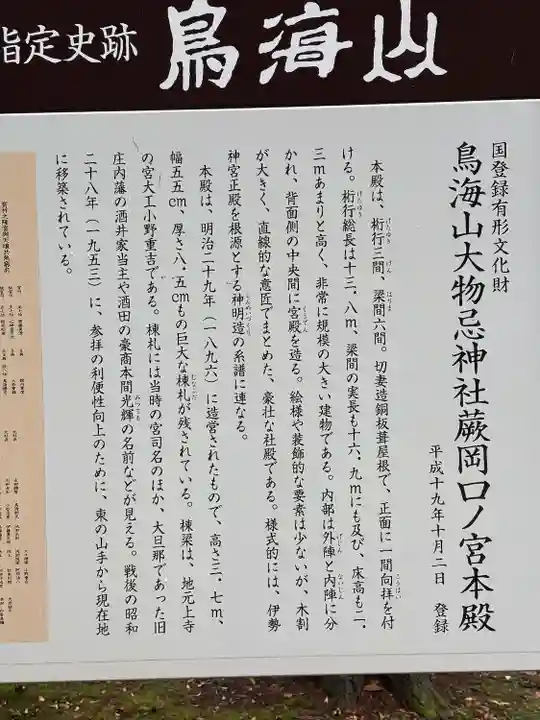 指定史跡 鳥海山
国登録有形文化財
鳥海山大物忌神社蕨岡口ノ宮本殿
平成十九年十月二日 登録
本殿は、桁行三間、梁間六間。切妻造銅板葺屋根で、正面に一間向拝を付
ける。桁行総長は十三.八m、梁間の実長も十六.九mにも及び、床高も二.
三mあまりと高く、非常に規模の大きい建物である。内部は外陣と内陣に分
かれ、背面側の中央間に宮殿を造る。絵様や装飾的な要素は少ないが、木割
が大きく、直線的な意匠でまとめた、豪壮な社殿である。様式的には、伊勢
神宮正殿を根源とする神明造の系譜に連なる。
本殿は、明治二十九年（一八九六）に造営されたもので、高さ三.七m、
幅五五cm、厚さ八.五cmもの巨大な棟札が残されている。棟梁は、地元上寺
の宮大工小野重吉である。棟札には当時の宮司名のほか、大旦那であった旧
庄内藩の酒井家当主や酒田の豪商本間光輝の名前などが見える。戦後の昭和
二十八年（一九五三）に、参拝の利便性向上のために、東の山手から現在地
に移築されている。